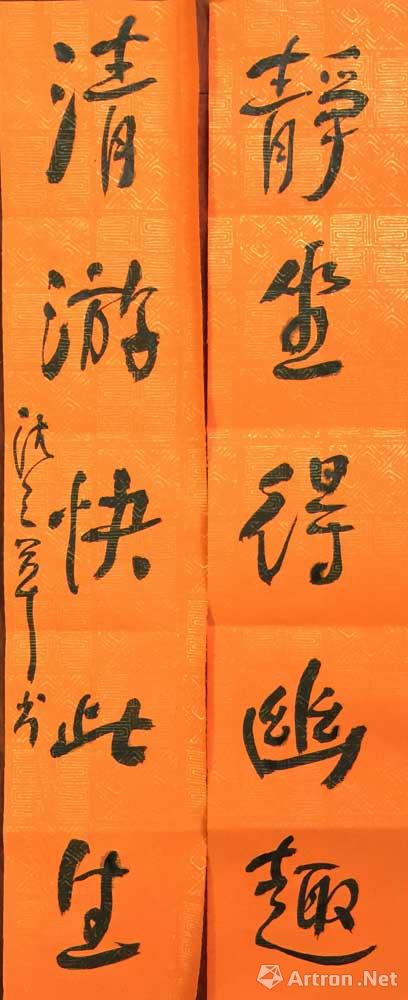 靜坐得幽趣
清游快此生
Artron.Net